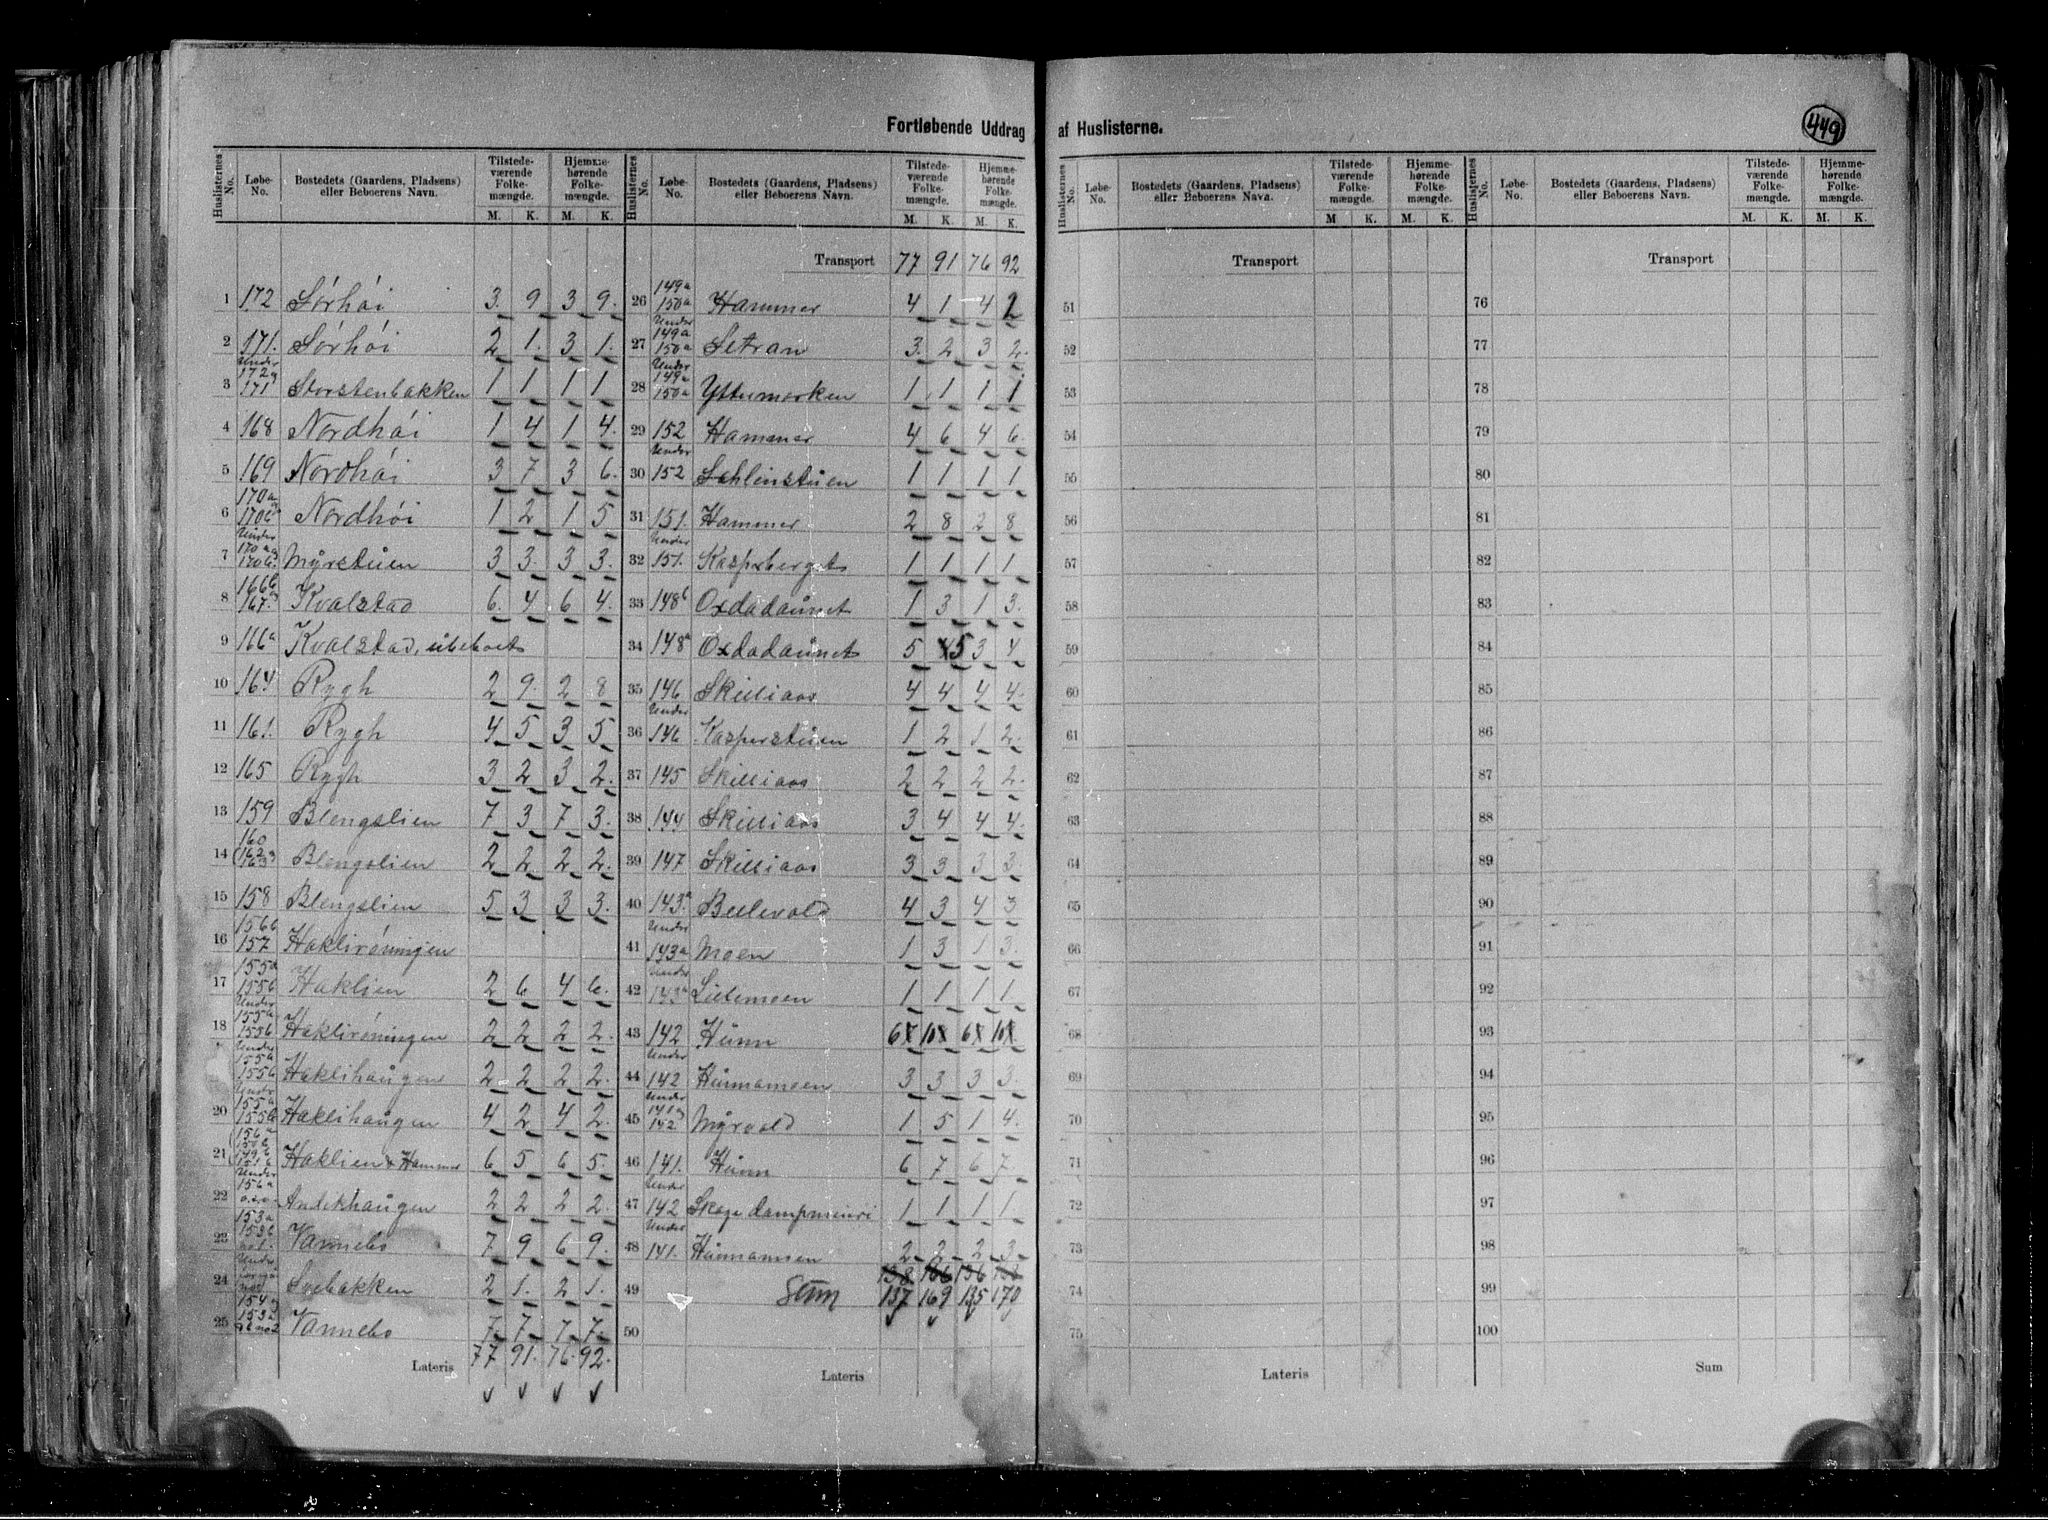 Fortløbende Uddrag af Huslisterne.
449
Huslisternes No. | Løbe-No. | Bostedets (Gaardens, Pladsens) eller Beboerens Navn. | Tilstede-værende Folke-mængde. M. K. | Hjemme-hørende Folke-mængde. M. K.
1 172 Sórhói 3 9 3 9.
2 171. Sórhói 2 1. 3 1.
3 Under 172 og 171 Storstenbakken 1 1 1 1
4 168 Nordhói 1 4 1 4.
5 169 Nordhói 3 7 3 6.
6 170a og 170b Nordhói 1 2 1 5
7 Under 170a og 170b. Mÿrstuen 3 3. 3 3.
8 166b og 167. Kvalstad 6. 4 6 4.
9 166a Kvalstad, ubeboet
10 164 Rygh 2 9. 2 8
11 161. Rygh 4 5 3 5
12 165 Rygh 3 2 3 2.
13 159 Blengslien 7 3 7 3.
14 160 162 og 163 Blengslien 2 2 2 2.
15 158 Blengslien 5 3 3 3.
16 156b 157 Hakliróningen
17 155a 155b Haklien 2 6 4 6.
18 Under 155a 155b Hakliróningen 2 2 2 2.
Under 155a 155b Haklihaugen 2 2 2 2.
20 Under 155a 155b Haklihaugen 4 2 4 2.
21 156a 150b 149b 151b Haklien & Hammer 6 5 6 5.
22 Under 156a o.s.v. Andekhaugen 2 2 2 2.
23 153a 153b Vannebo 7 9 6 9.
24 Under Svebakken 2 1. 2 1.
25 154 og 153a Vannebo 7. 7 7 7.
Lateris 77 91. 76. 92.
Huslisternes No. | Løbe-No. | Bostedets (Gaardens, Pladsens) eller Beboerens Navn. | Tilstede-værende Folke-mængde. M. K. | Hjemme-hørende Folke-mængde. M. K.
Transport 77 91 76 92
26 149a 150a Hammer 4 1 4 1
27 Under 149a 150a Setran 3. 2 3 2.
28 Under 149a 150a Yttermarken 1 1 1 1
29 152 Hammer 4 6 4 6.
30 Under 152 Sahlinstuen 1 1 1 1
31 151. Hammer 2 8 2 8
32 Under 151. Kaspersberget 1 1 1 1
33 148b Oxdadaunet 1 3 1 3.
34 148a Oxdadaunet 5 5 3 4
35 146 Skilliaas 4 4 4 4.
36 Under 146 Kasperstuen 1 2 1 2.
37 145 Skilliaas 2 2 2 2.
38 144 Skilliaas 3 4 4 4.
39 147 Skilliaas 3 3 3 3.
40 143a Bellevold 4 3 4 3
41 Under 143a Moen 1 3 1 3.
42 Under 143a Lillemoen 1 1 1 1
43 142 Hunn 6 10 6 10
44 Under 142 Hunnamoen 3 3 3 3.
45 Under 141 og 142 Mÿrvold 1 5 1 4
46 141. Hunn 6 7 6 7
47 Under 142 Skage dampmeieri 1 1 1 1
48 Under 141. Hunnamoen 2 2 2 3.
138 166 136 168
49 Sum 137 169 135 170
50
Lateris
Huslisternes No. | Løbe-No. | Bostedets (Gaardens, Pladsens) eller Beboerens Navn. | Tilstede-værende Folke-mængde. M. K. | Hjemme-hørende Folke-mængde. M. K.
Transport
51
52
53
54
55
56
57
58
59
60
61
62
63
64
65
66
67
68
69
70
71
72
73
74
75
Lateris
Huslisternes No. | Løbe-No. | Bostedets (Gaardens, Pladsens) eller Beboerens Navn. | Tilstede-værende Folke-mængde. M. K. | Hjemme-hørende Folke-mængde. M. K.
Transport
76
77
78
79
80
81
82
83
84
85
86
87
88
89
90
91
92
93
94
95
96
97
98
99
100
Sum